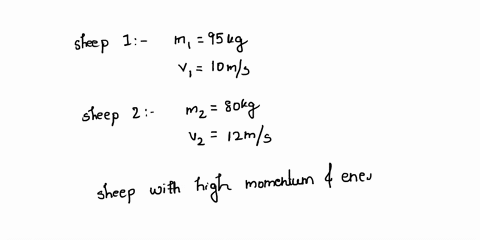 sheep 1:- m₁ = 95kg
v₁ = 10m/s
sheep 2:- m₂ = 80kg
v₂ = 12m/s
sheep with high momentum &